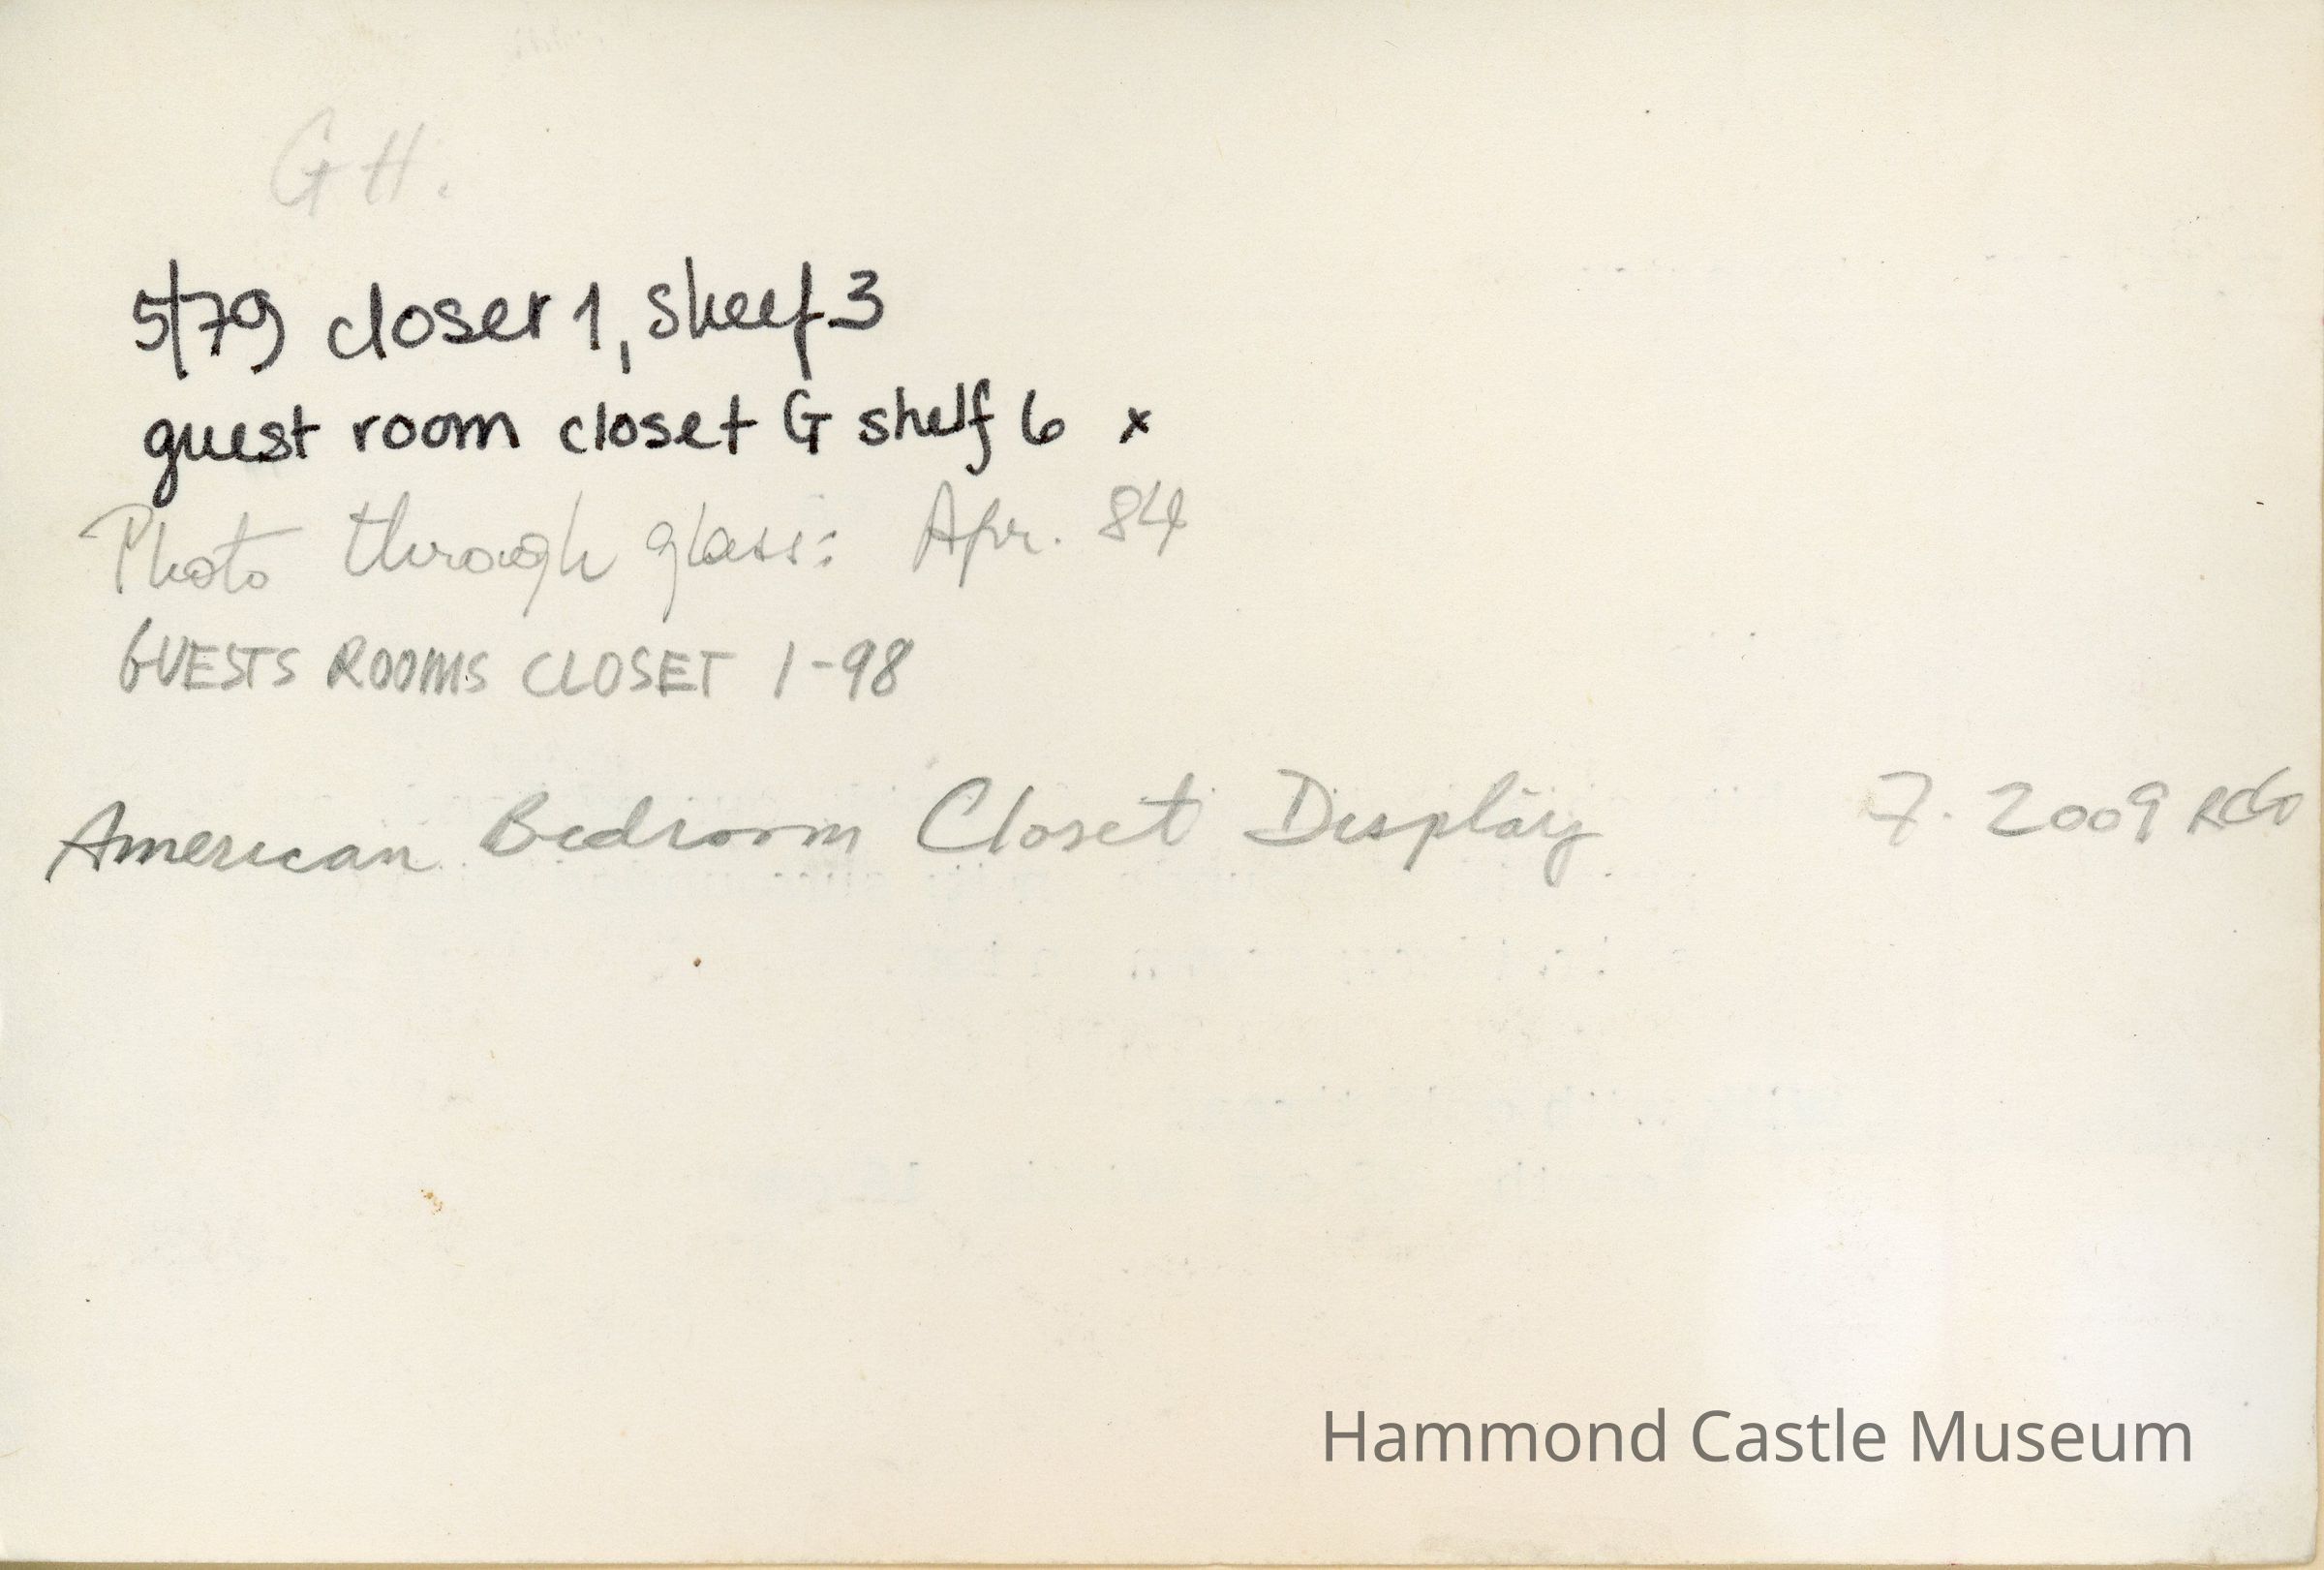 GH.
5/79 closet 1, shelf 3
guest room closet G shelf 6 x
Photo through glass: Apr. 84
GUESTS ROOMS CLOSET 1-98
American Bedroom Closet Display 7. 2009
Hammond Castle Museum